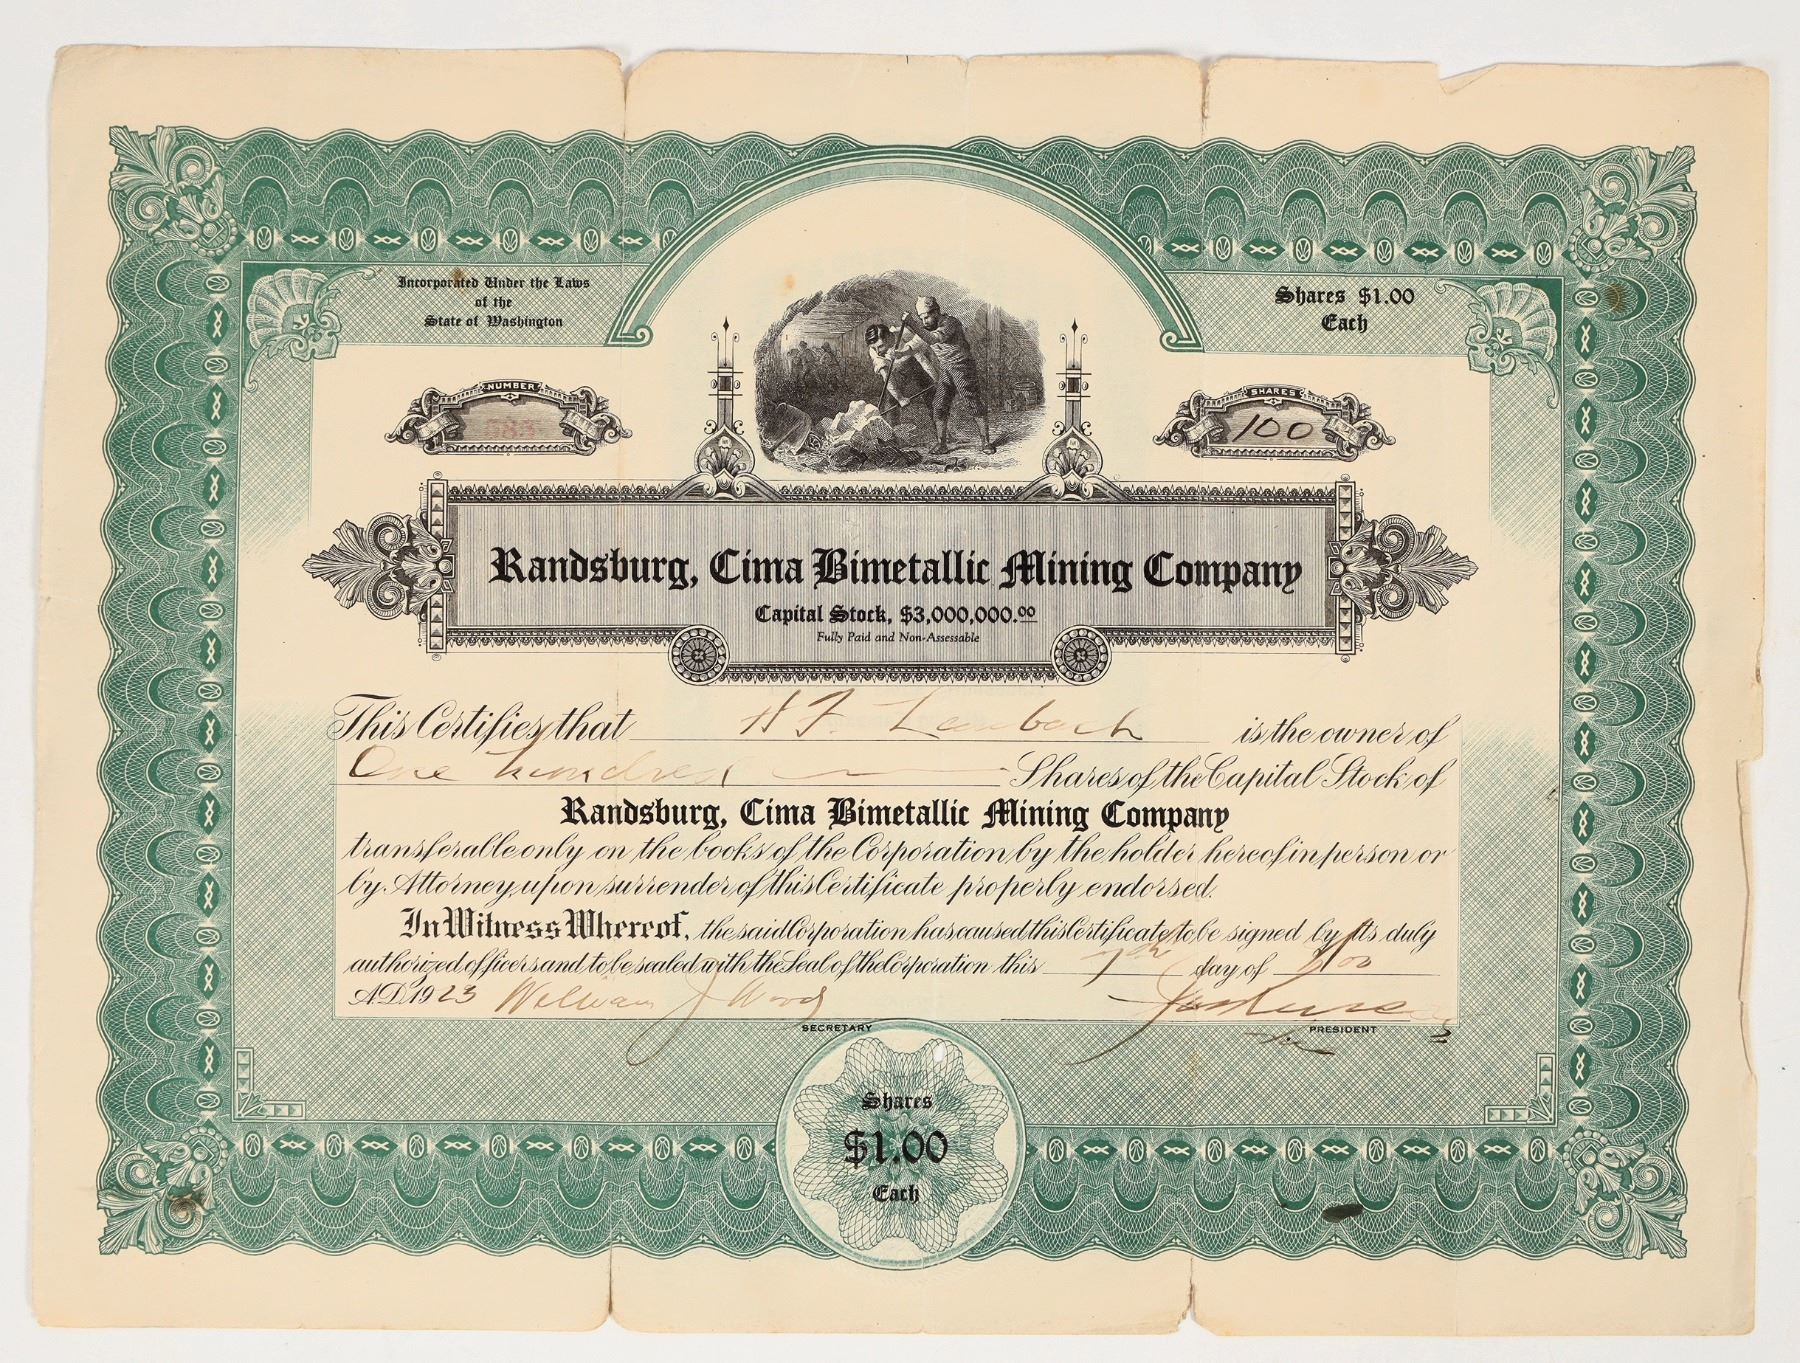 Incorporated Under the Laws
of the
State of Washington
Shares $1.00
Each
NUMBER
SHARES
100
Randsburg, Cima Bimetallic Mining Company
Capital Stock, $3,000,000.00
Fully Paid and Non-Assessable
This Certifies that H F. Laubach is the owner of
One hundred Shares of the Capital Stock of
Randsburg, Cima Bimetallic Mining Company
transferable only on the books of the Corporation by the holder hereof in person or
by Attorney, upon surrender of this Certificate properly endorsed.
In Witness Whereof, the said Corporation has caused this Certificate to be signed by its duly
authorized officers and to be sealed with the Seal of the Corporation this 7th day of Nov
A.D. 1923 William J Wood
SECRETARY
PRESIDENT
Shares
$1.00
Each